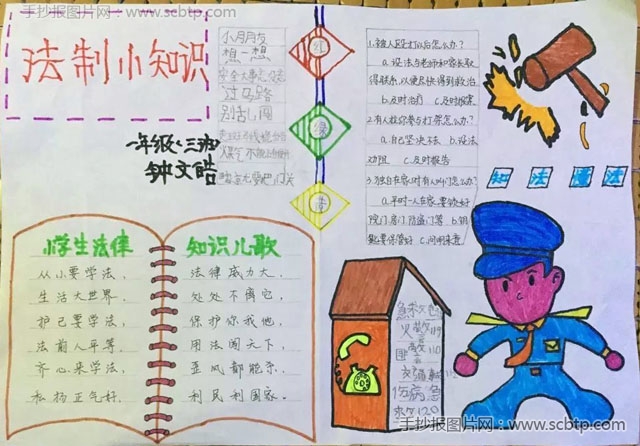 手抄报图片网：www.scbtp.com
法制小知识
一年级（三）班
钟文皓
小朋友
想一想
安全大事
过马路
别乱闯
红
绿
黄
1.被人殴打以后怎么办？
a.设法与老师和家长取
得联系，以便尽快得到救治
b.及时治疗 c.及时报案
2.有人拉你参与打架怎么办？
a.自己坚决不去 b.设法
劝阻 c.及时报告
3.独自在家时有人叫门怎么办？
a.平时一人在家，要锁好
院门、房门、防盗门等 b.钥
匙要保管好 c.问明来意
知 法 懂 法
小学生法律
知识儿歌
从小要学法，
生活大世界．
护已要学法，
法前人平等．
齐心来学法，
私扬正气好．
法律威力大．
处处不离它，
保护你我他，
用法闯天下，
歪风都能杀．
利民利国家．
急救电
火警119
匪警110
交通事
伤病急
救120
手抄报图片网：www.scbtp.com